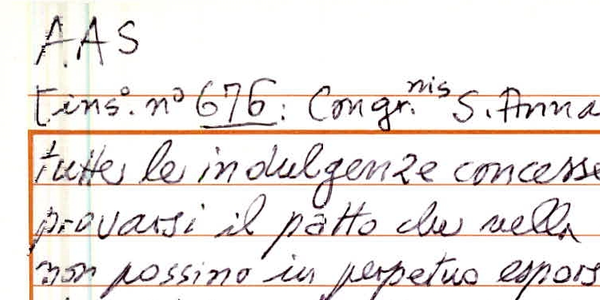 A.A.S
[ins. nº 676: Congr.nis S. Anna
tutte le indulgenze concesse
provarsi il patto che nella
non possino in perpetuo espors